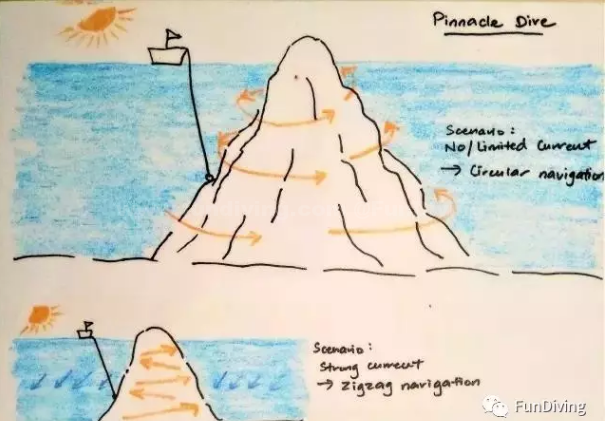 Pinnacle Dive
Scenario:
No/Limited Current
→ Circular navigation
Scenario:
Strong current
→ Zigzag navigation
FunDiving